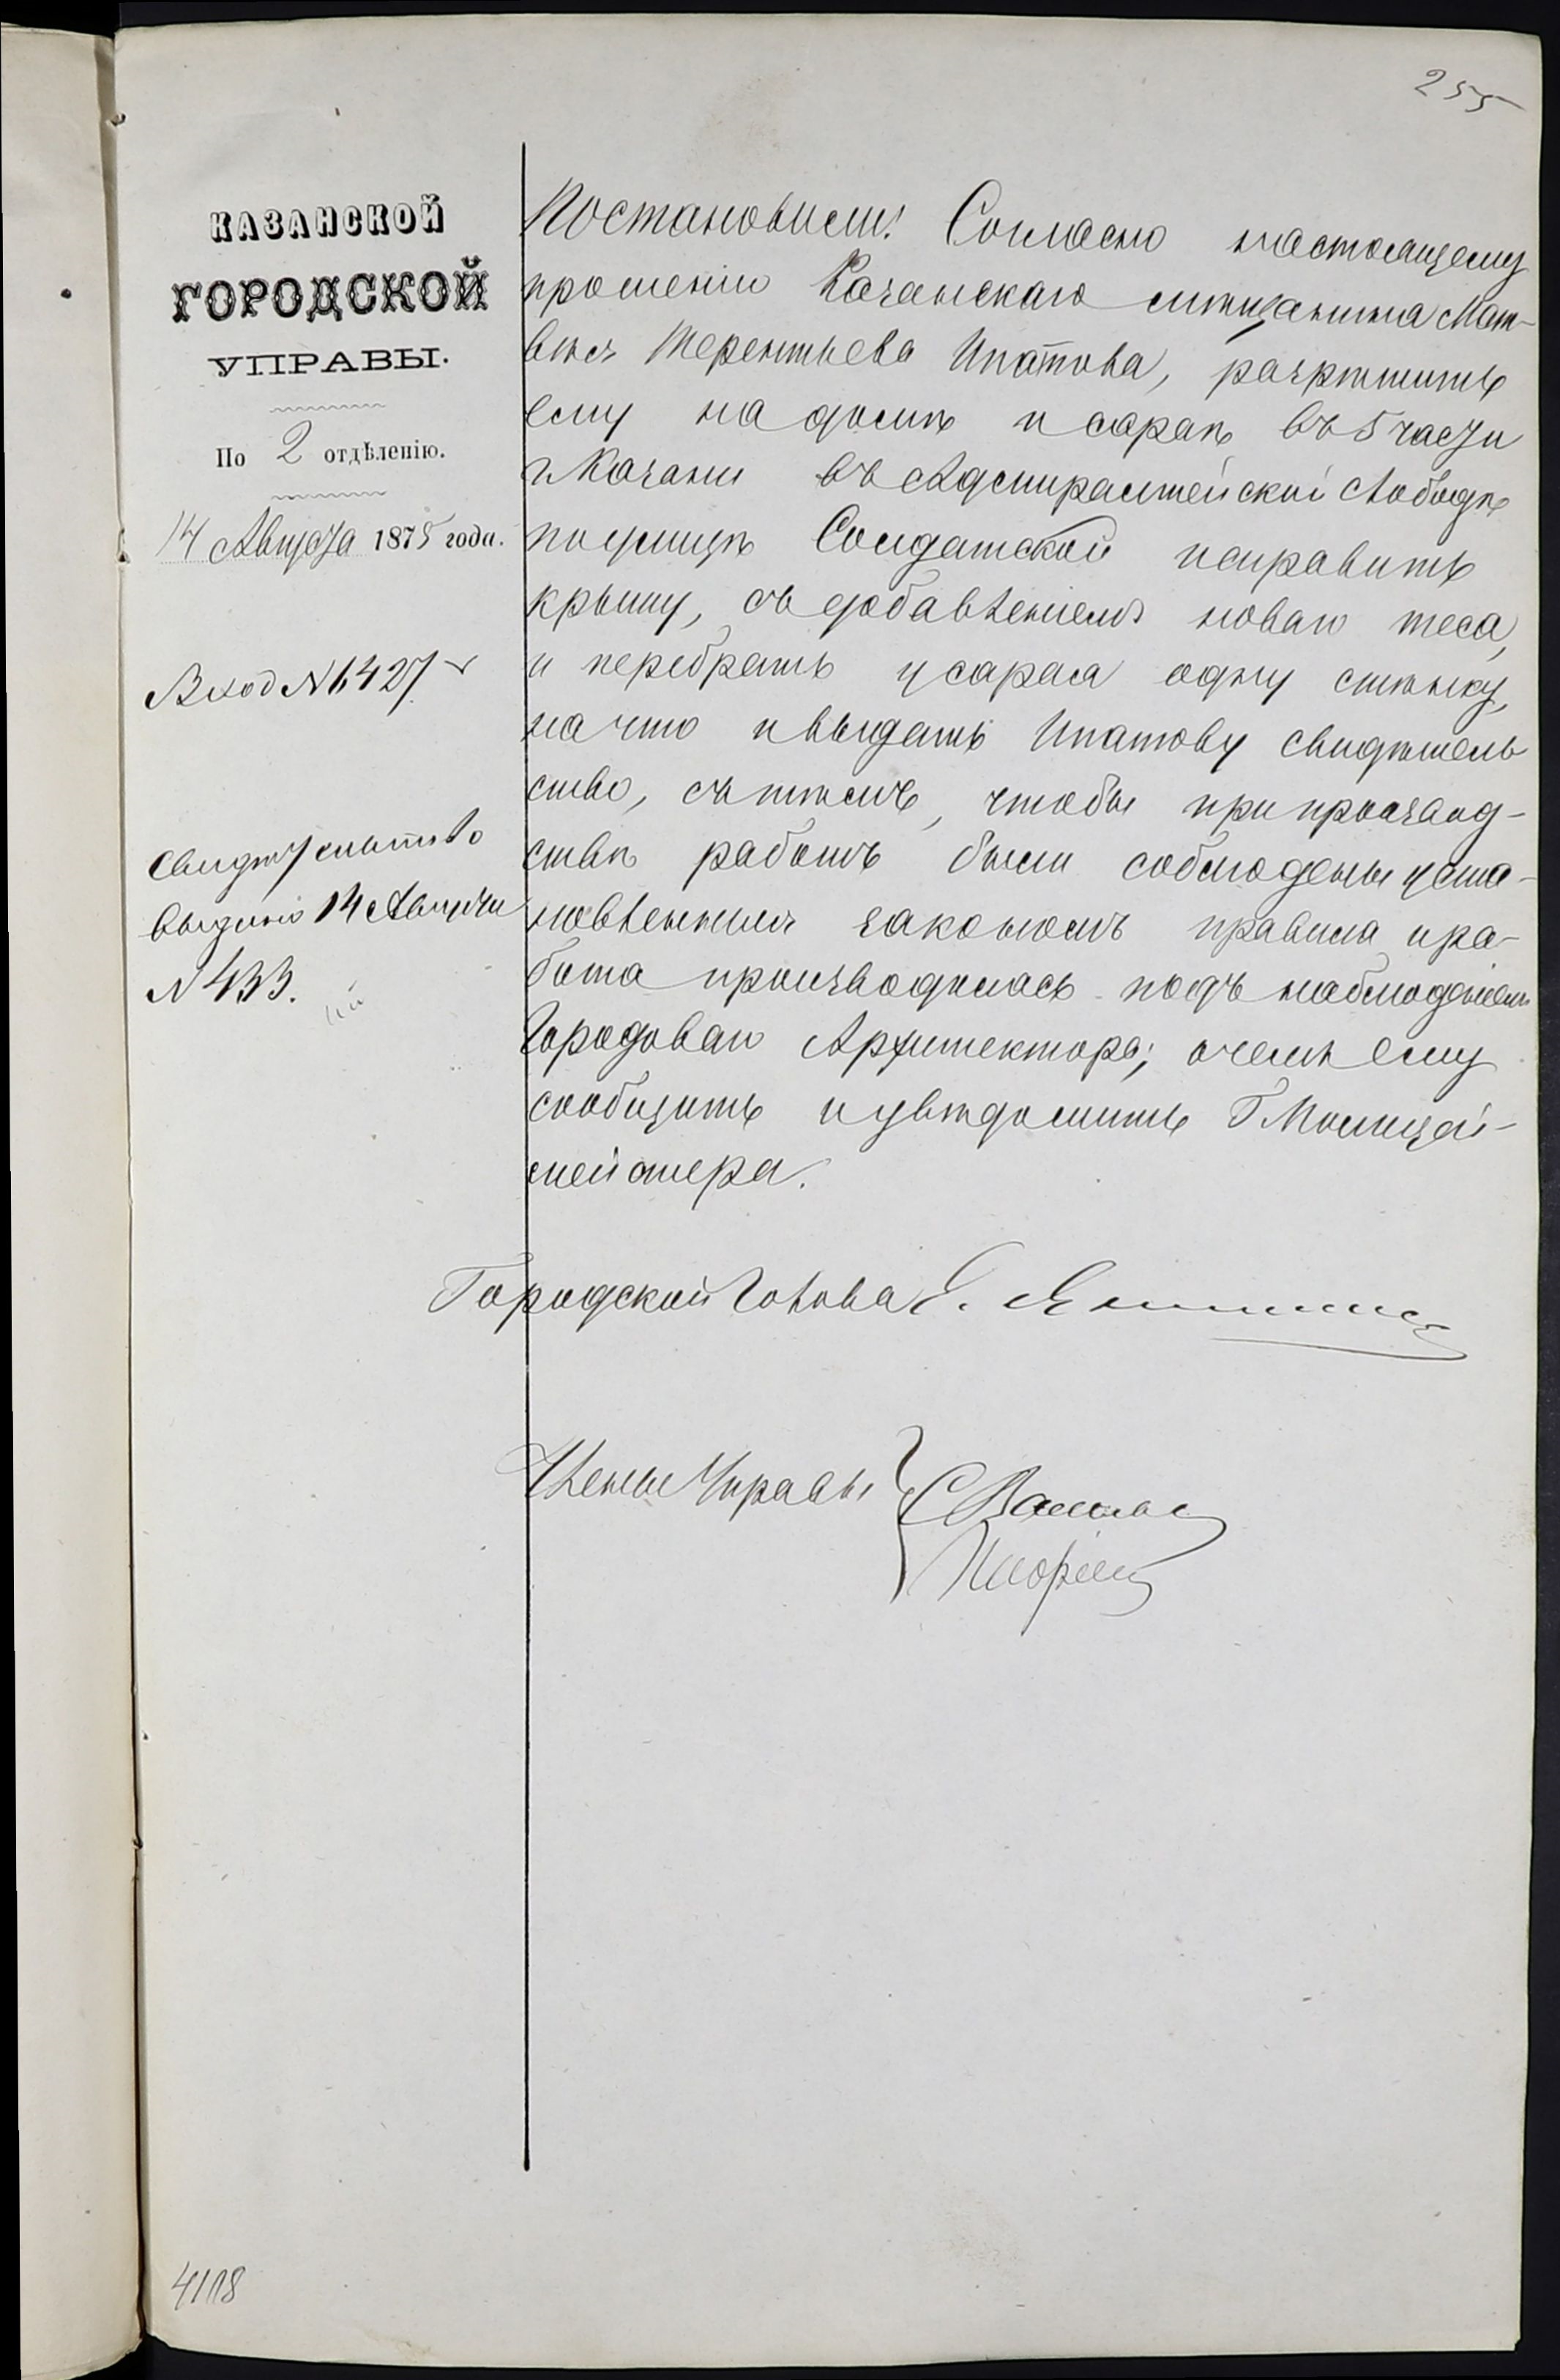 255
КАЗАНСКОЙ
ГОРОДСКОЙ
УПРАВЫ.
По 2 отдѣленію.
14 Августа 1875 года.
Вход № 6427
Свидѣтельство
выдано 14 Августа
№ 433.
Постановили: Согласно настоящему
прошенію Казанскаго мѣщанина Мат-
вѣя Терентьева Ипатова, разрѣшить
ему на домѣ и сараѣ въ 5 части
г. Казани въ Адмиралтейской слободѣ
по улицѣ Солдатской исправить
крышу, съ добавленіемъ новаго теса,
и перебрать у сарая одну стѣнку,
на что и выдать Ипатову свидѣтель
ство, съ тѣмъ, чтобы при производ-
ствѣ работъ были соблюдены уста-
новленныя закономъ правила и ра-
бота производилась подъ наблюденіемъ
Городоваго Архитектора; о чемъ ему
сообщить и увѣдомить Г Полицей-
мейстера.
Городской Голова Е.
Члены Управы
4118